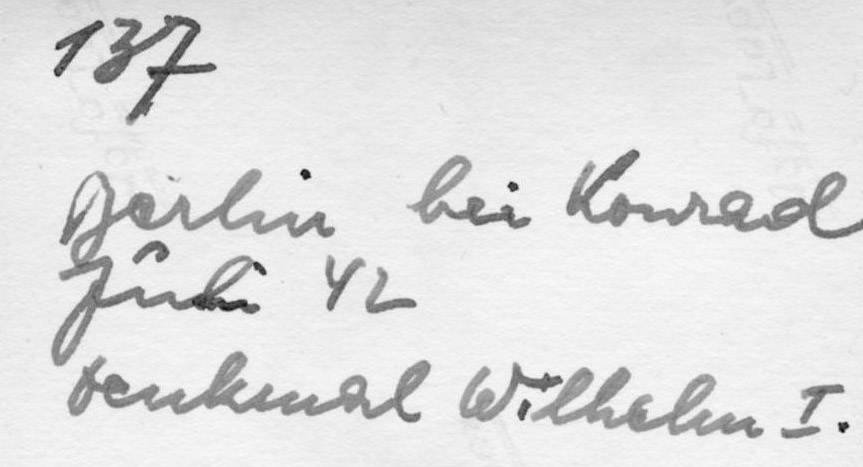 137
Berlin bei Konrad
Juli 42
Denkmal Wilhelm I.